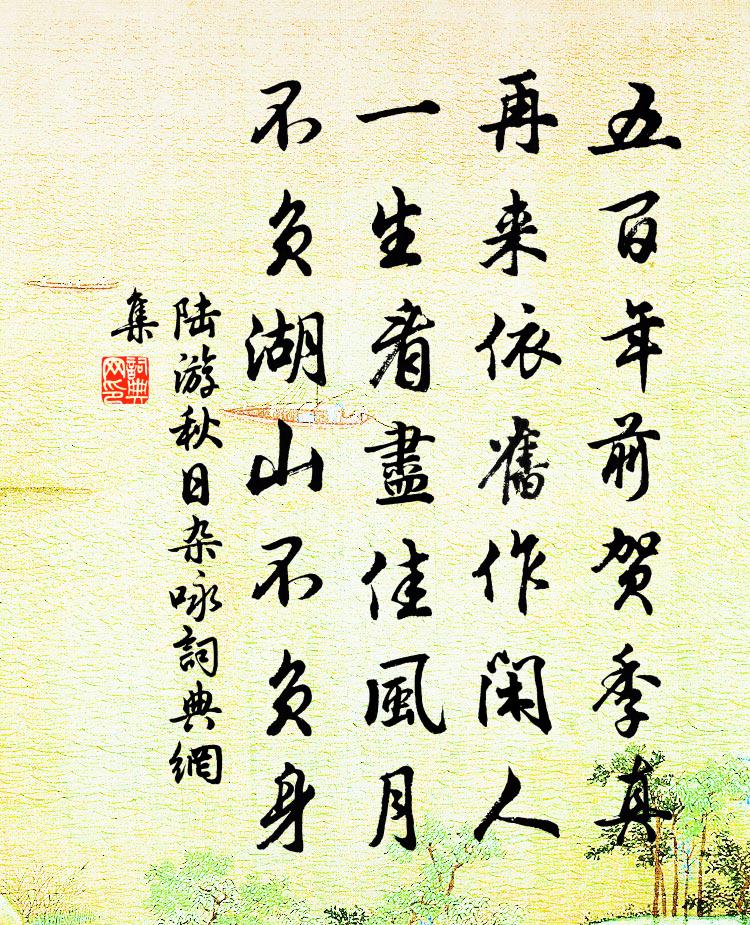 五百年前贺季真
再来依舊作闲人
一生看盡佳風月
不负湖山不负身
陆游秋日杂咏詞典網
集
詞典
网印